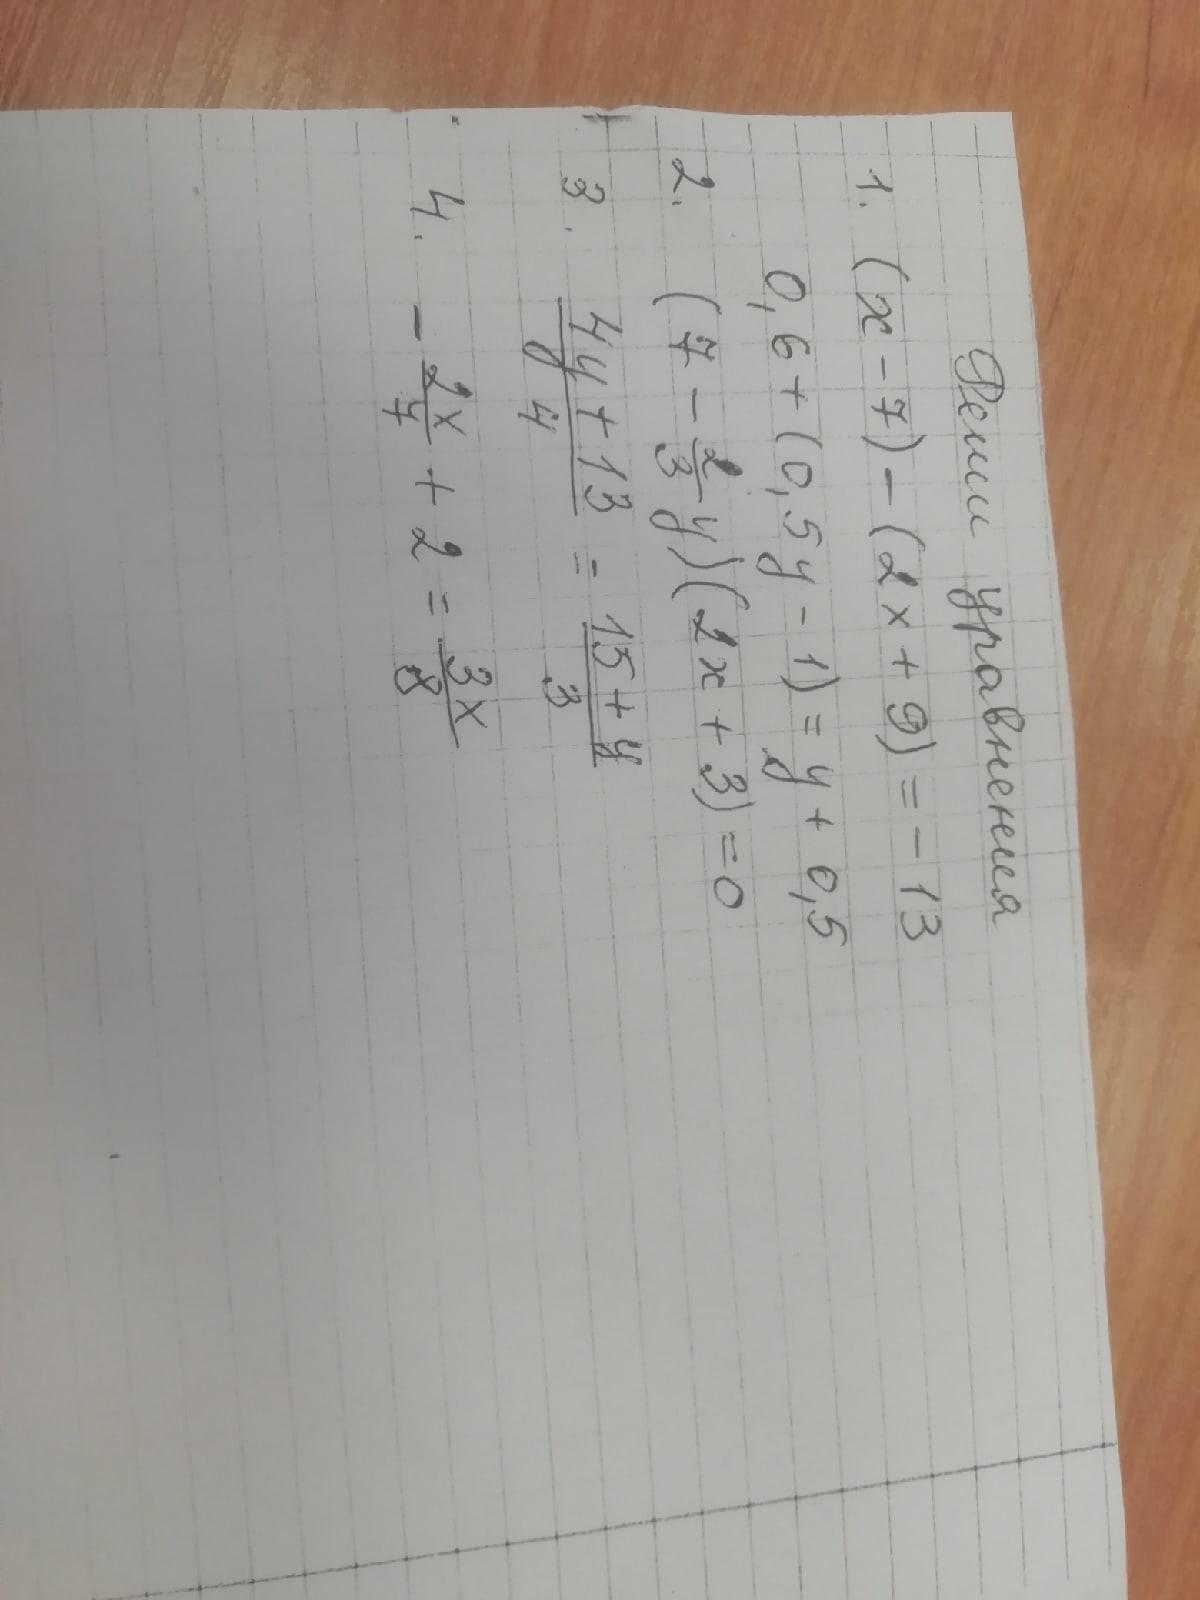 Реши уравнения
1. (x - 7) - (2x + 9) = - 13
0,6 + (0,5y - 1) = y + 0,5
2. (7 - 2/3 y)(2x + 3) = 0
3. (4y + 13)/4 = (15 + y)/3
4. - 2x/7 + 2 = 3x/8